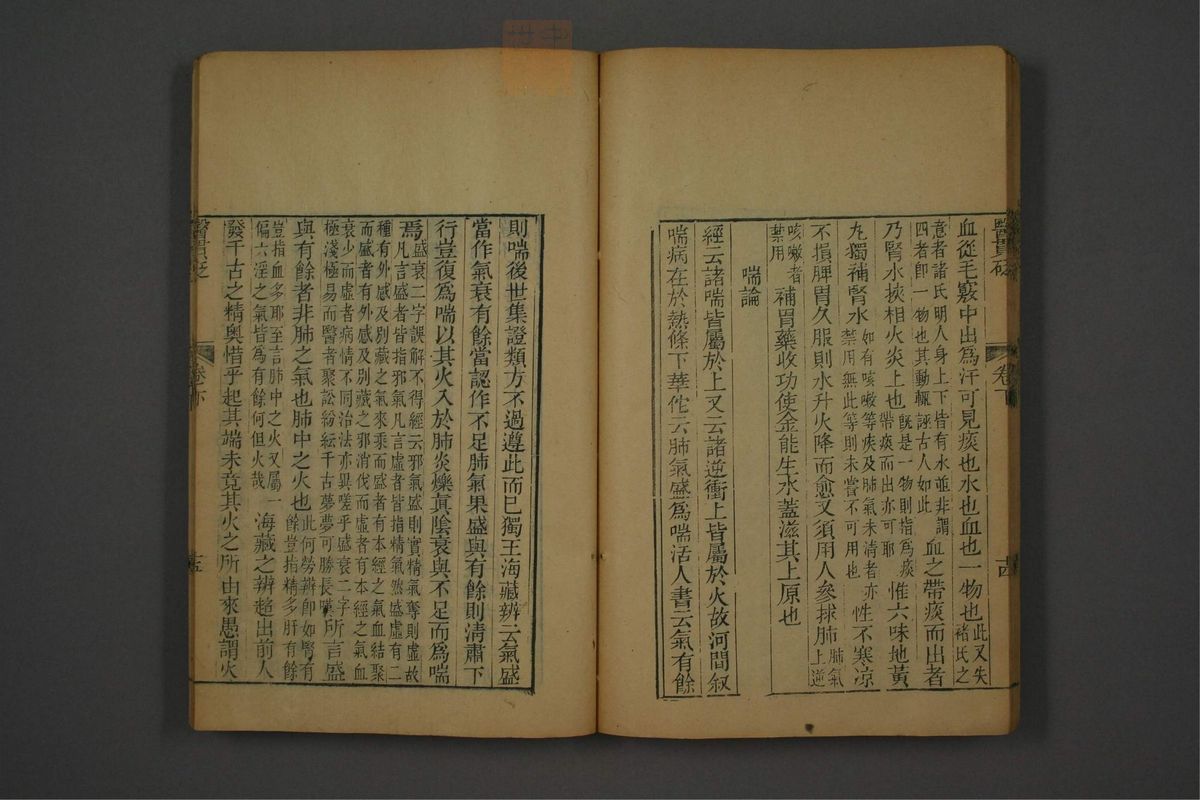 血從毛竅中出爲汗可見痰也水也血也一物也此又失褚氏之
意者諸氏明人身上下皆有水並非謂四者卽一物也其動輒誣古人如此血之帶痰而出者
乃腎水挾相火炎上也旣是一物則指爲痰帶痰而出亦可耶惟六味地黃
丸獨補腎水如有咳嗽等疾及肺氣未清者亦禁用無此等則未嘗不可用也性不寒凉
不損脾胃久服則水升火降而愈又須用人參救肺肺氣上逆
咳嗽者禁用補胃藥收功使金能生水蓋滋其上原也
喘論
經云諸喘皆屬於上又云諸逆衝上皆屬於火故河間叙
喘病在於熱條下華佗云肺氣盛爲喘活人書云氣有餘
醫貫砭
卷下
古
則喘後世集證類方不過遵此而已獨王海藏辨云氣盛
當作氣衰有餘當認作不足肺氣果盛與有餘則清肅下
行豈復爲喘以其火入於肺炎爍眞陰衰與不足而爲喘
焉盛衰二字誤解不得經云邪氣盛則實精氣奪則虛故凡言盛者皆指邪氣凡言虛者皆指精氣然盛虛有二
種有外感及別藏之氣來乘而盛者有本經之氣血結聚而盛者有外感及別藏之邪消伐而虛者有本經之氣血
衰少而虛者病情不同治法亦異嗟乎盛衰二字極淺極易而醫者聚訟紛紜千古夢夢可勝長嘆所言盛
與有餘者非肺之氣也肺中之火也此何勞辨卽如腎有餘豈指精多肝有餘
豈指血多耶至言肺中之火又屬一偏六淫之氣皆爲有餘何但火哉海藏之辨超出前人
發千古之精奧惜乎起其端未竟其火之所由來愚謂火
醫貫砭
卷下